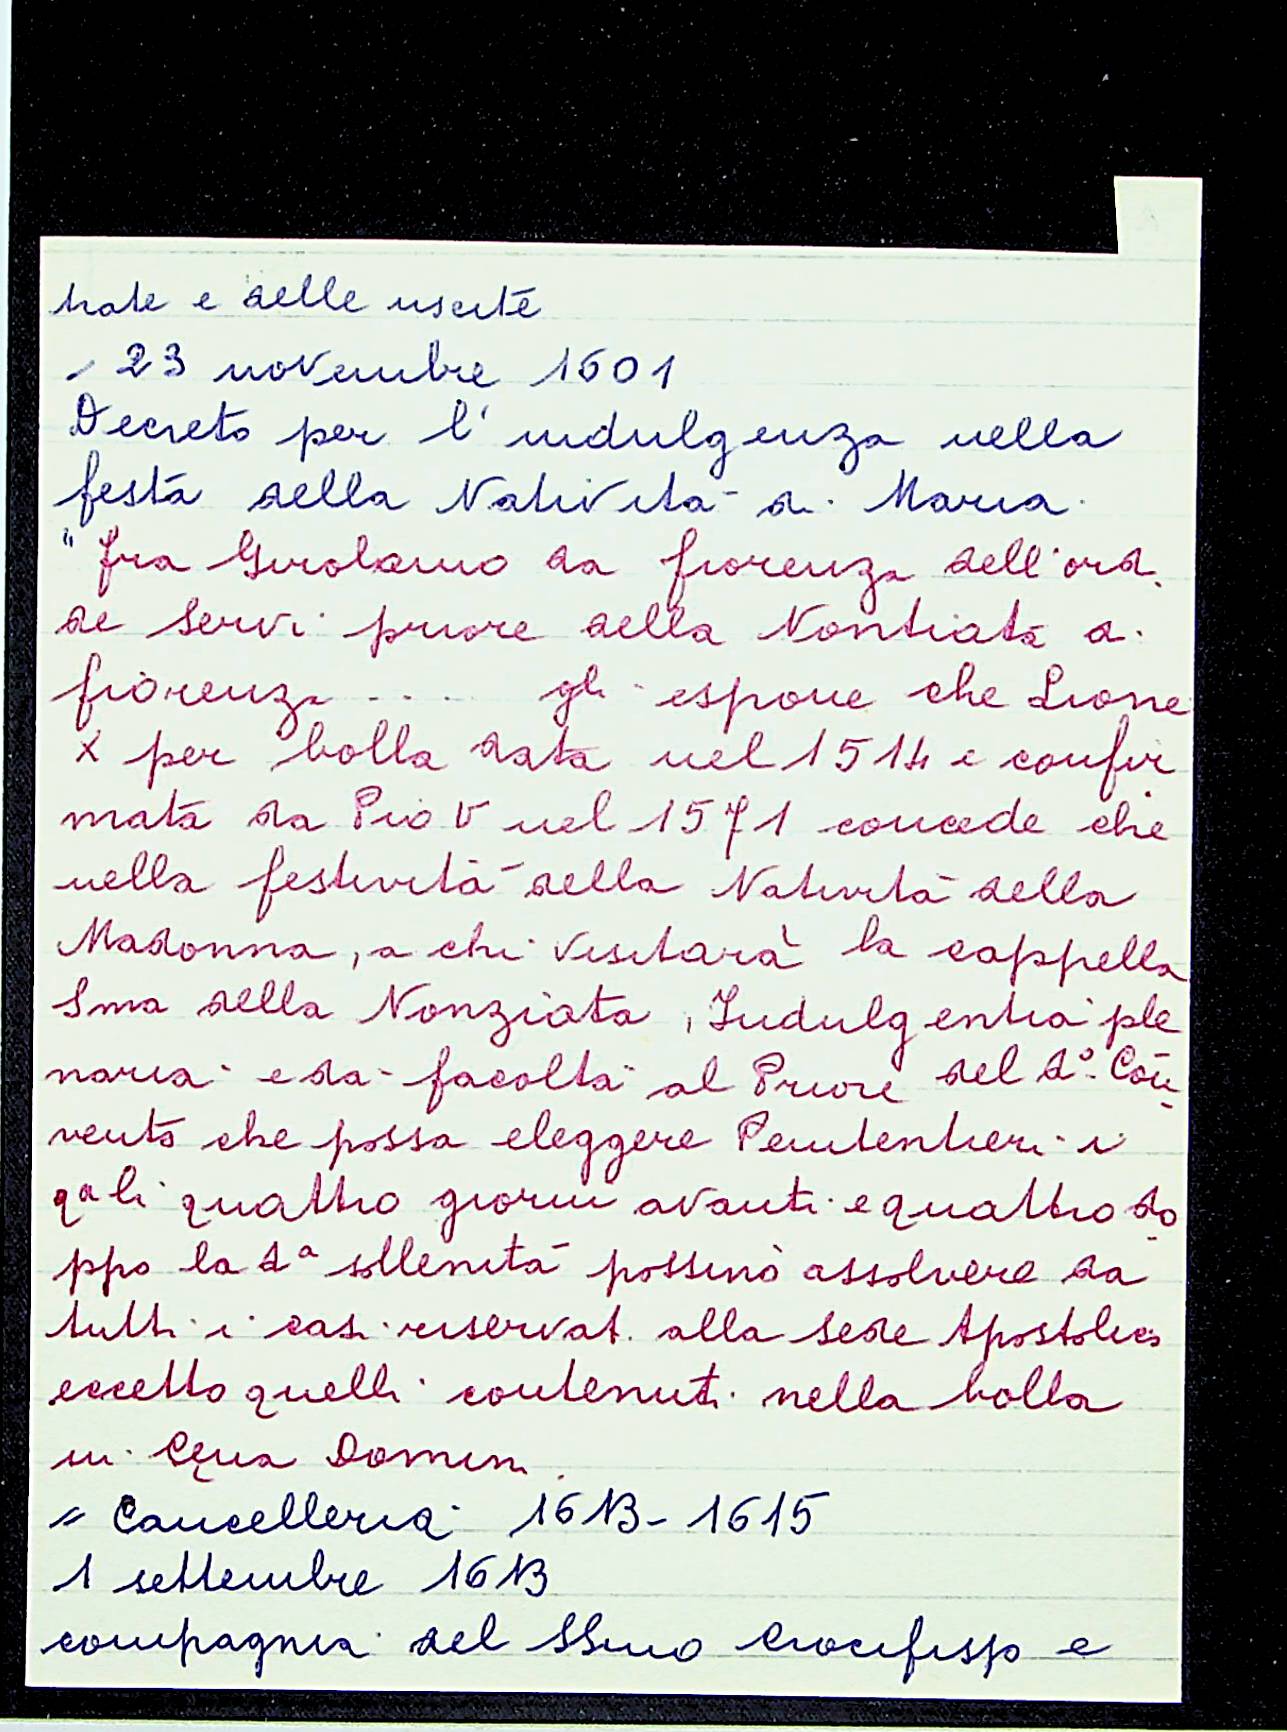 trate e delle uscite
- 23 novembre 1601
Decreto per l'indulgenza nella
festa della Natività di Maria
"fra Girolamo da fiorenza dell'ord.
de Servi priore della Nontiata di
fiorenza .... gli espone che Lione
X per bolla data nel 1514 e confir
mata da Pio V nel 1571 concede che
nella festività della Natività della
Madonna, a chi visitarà la cappella
Sma della Nonziata, Indulgentia ple
naria e da facoltà al Priore del d.º Con
vento che possa eleggere Penitentieri i
qali quattro giorni avanti e quattro do
ppo la d.ª sollenità possino assolvere da
tutti i casi riservati alla sede Apostolica
eccetto quelli contenuti nella bolla
in Cena Domini.
= Cancelleria 1613-1615
1 settembre 1613
compagnia del SSmo Crocifisso e